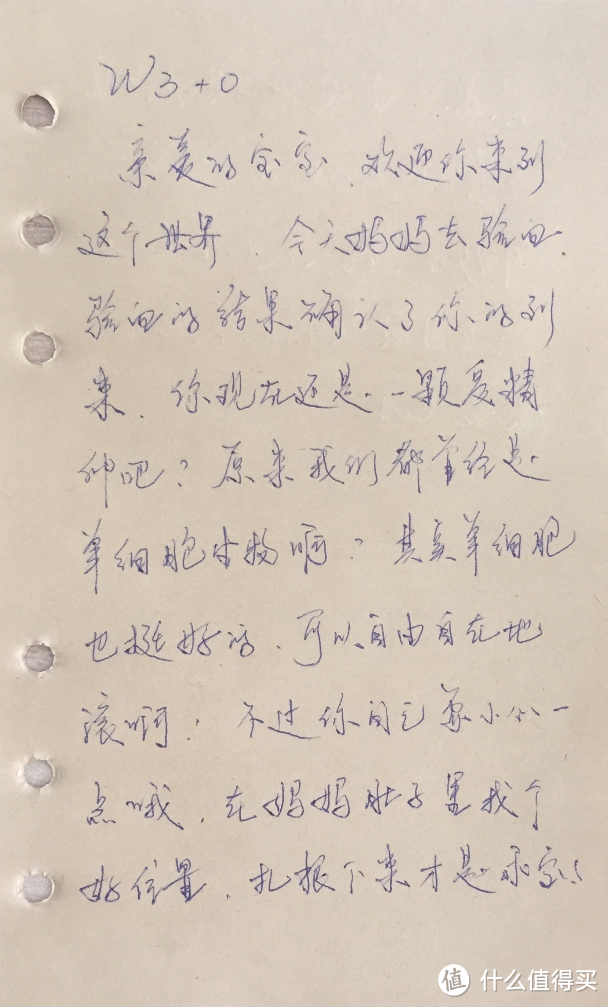 W3+0
亲爱的宝宝，欢迎你来到
这个世界。今天妈妈去验血，
验血的结果确认了你的到
来。你现在还是一颗受精
卵吧？原来我们都曾经是
单细胞生物啊？其实单细胞
也挺好的，可以自由自在地
滚啊！不过你自己要小心一
点哦，在妈妈肚子里找个
好位置，扎根下来才是乖宝。
值 什么值得买